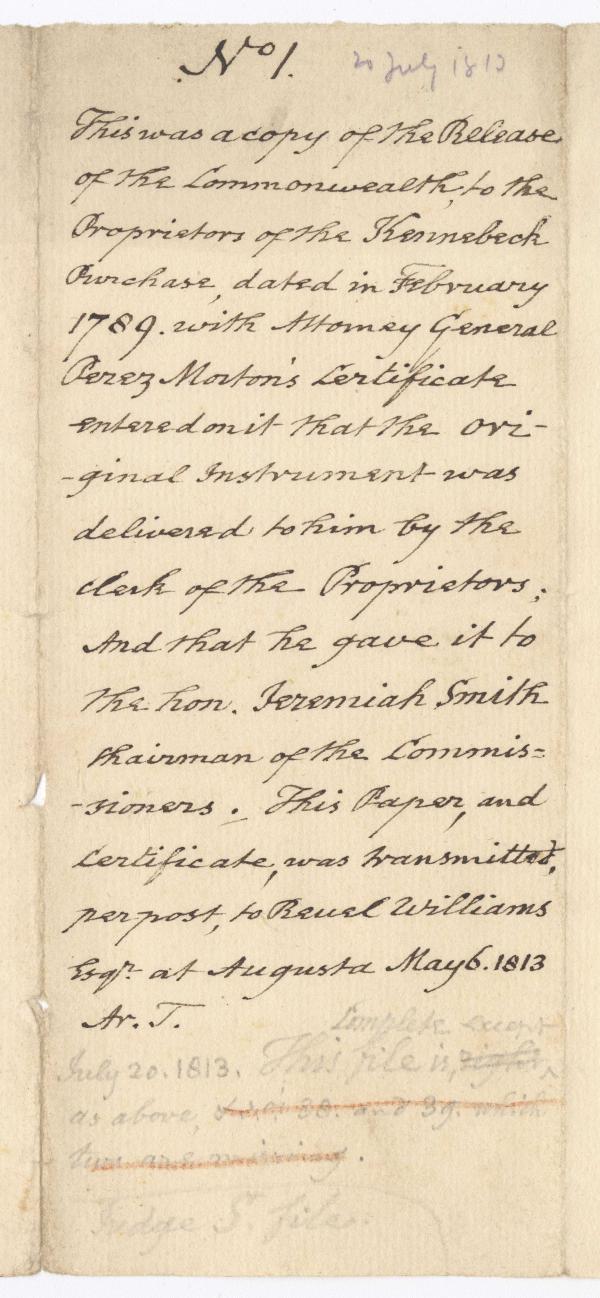 No 1.
20 July 1813
This was a copy of the Release
of the Commonwealth, to the
Proprietors of the Kennebeck
Purchase, dated in February
1789. with Attorney General
Perez Morton's Certificate
entered on it that the ori-
-ginal Instrument was
delivered to him by the
clerk of the Proprietors;
And that he gave it to
the hon. Jeremiah Smith
chairman of the Commis=
-sioners. This Paper, and
Certificate, was transmitted,
per post, to Reuel Williams
Esqr. at Augusta May 6. 1813
Ar. T.
Complete except
July 20. 1813. This file is, right ^
as above, & No. 38. and 39. which
two are missing.
Judge S. file.